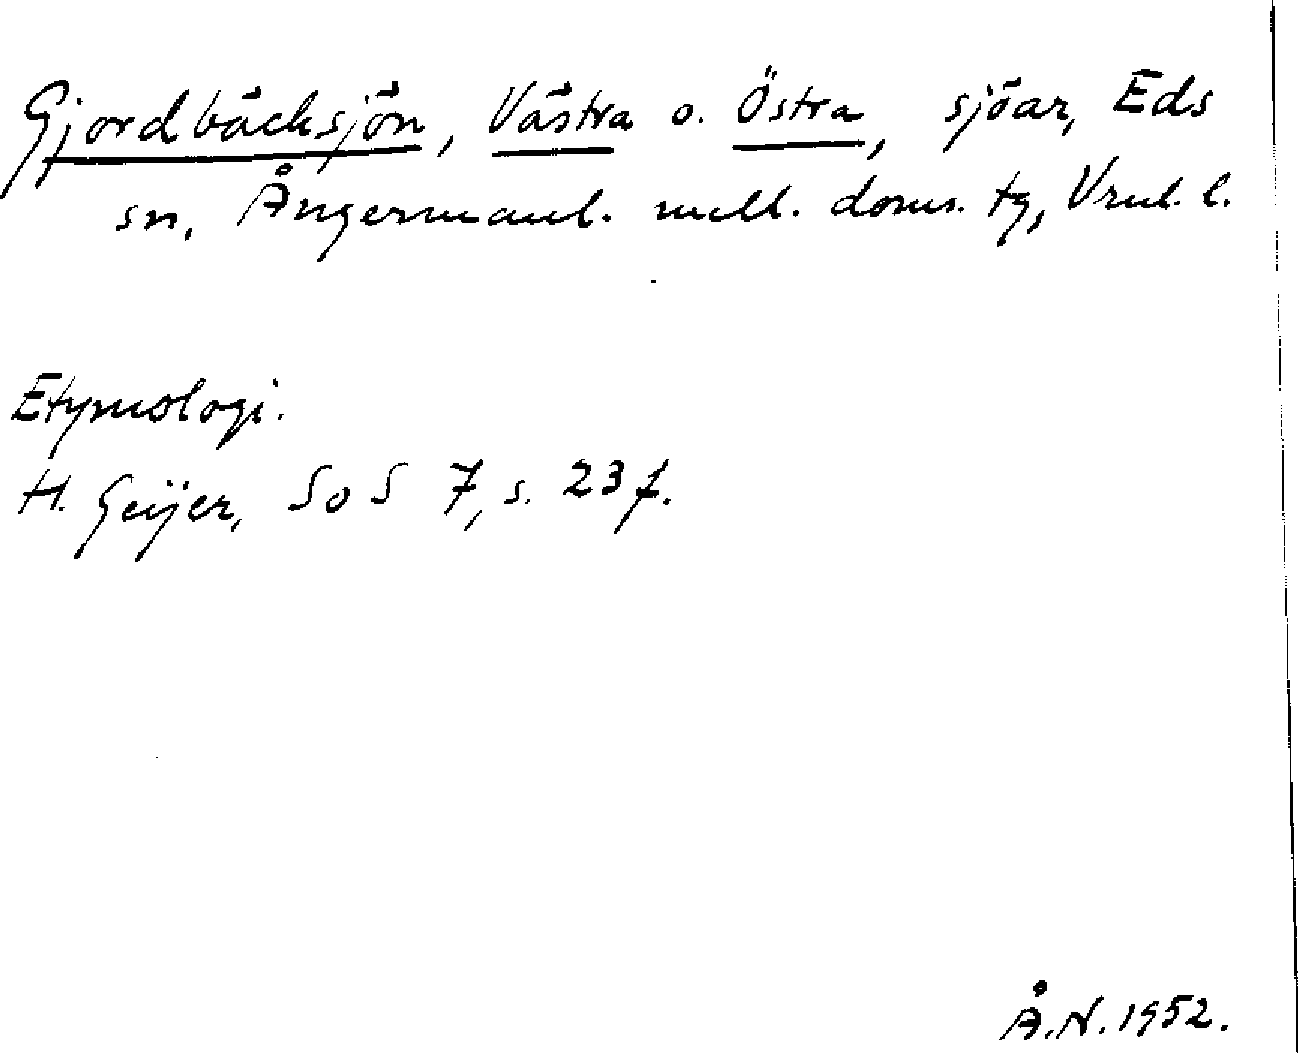 Gjordbäcksjön, Västra o. Östra, sjöar, Eds
sn, Ångermanl. mell. doms. tg, Vrnl. l.
Etymologi.
H. Geijer, SoS 7, s. 23 f.
Å.N. 1952.